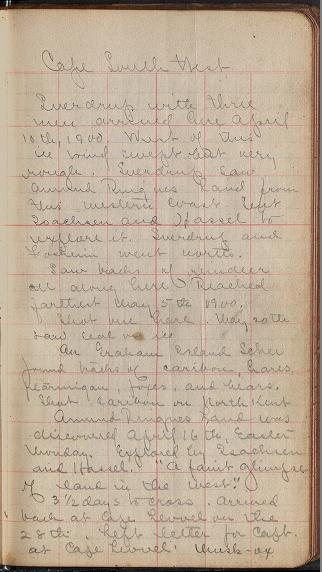 Cape South West
Sverdrup with three
men arrived here April
10th, 1900. West of this
ice wind swept but very
rough. Sverdrup saw
Amund Ringnes Land from
this western coast. Sent
Isachsen and Hassel to
explore it. Sverdrup and
Fosheim went north.
Saw tracks of reindeer
all along here. Reached
farthest May 5th 1900.
Shot one here. May 20th
saw seal on ice
On Graham Island Schei
found tracks of caribou, hares,
ptarmigan, foxes, and bears.
Shot caribou on North Kent
Amund Ringnes Land was
discovered April 16th, Easter
Monday. Explored by Isachsen
and Hassel. "A faint glimpse
of land in the west."
3 1/2 days to cross. Arrived
back at Cape Levvel on the
28th. Left letter for Capt.
at Cape Levvel. Musk-ox